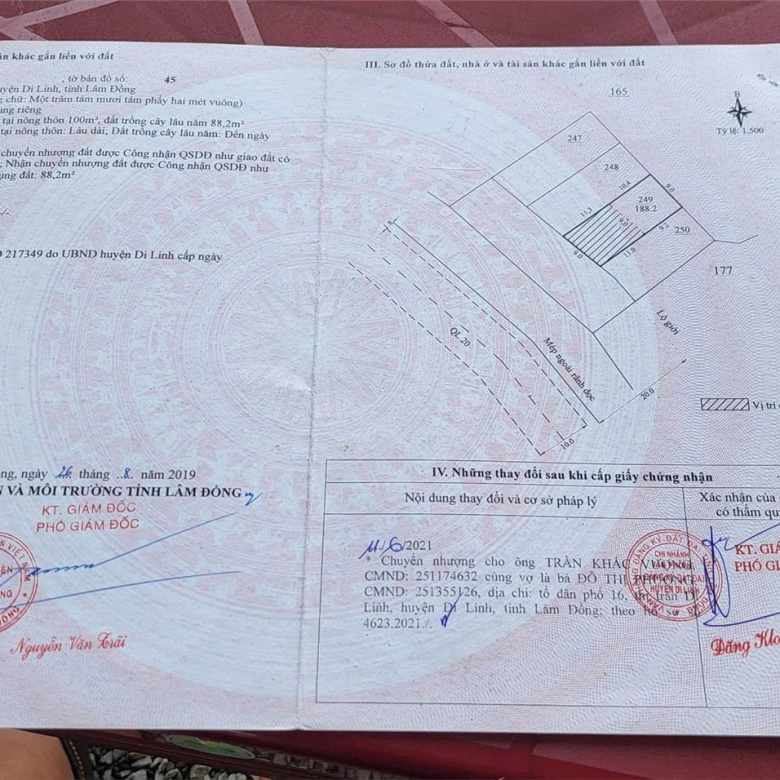 ản khác gắn liền với đất
, tờ bản đồ số: 45
uyện Di Linh, tỉnh Lâm Đồng
g chữ: Một trăm tám mươi tám phẩy hai mét vuông)
ụng riêng
tại nông thôn 100m², đất trồng cây lâu năm 88,2m²
tại nông thôn: Lâu dài; Đất trồng cây lâu năm: Đến ngày
chuyển nhượng đất được Công nhận QSDĐ như giao đất có
; Nhận chuyển nhượng đất được Công nhận QSDĐ như
ụng đất: 88,2m²
217349 do UBND huyện Di Linh cấp ngày
ng, ngày 26 tháng 8 năm 2019
N VÀ MÔI TRƯỜNG TỈNH LÂM ĐỒNG
KT. GIÁM ĐỐC
PHÓ GIÁM ĐỐC
Nguyễn Văn Trãi
III. Sơ đồ thửa đất, nhà ở và tài sản khác gắn liền với đất
B
Tỷ lệ: 1:500
165
247
248
249
188.2
250
177
10.4
8.0
11.3
9.0
9.7
8.0
11.0
Lộ giới
QL 20
Mép ngoài rãnh dọc
20.0
10.0
Vị trí
IV. Những thay đổi sau khi cấp giấy chứng nhận
Nội dung thay đổi và cơ sở pháp lý
Xác nhận của
có thẩm qu
11/6/2021
* Chuyển nhượng cho ông TRẦN KHẮC
CMND: 251174632 cùng vợ là bà ĐỖ THỊ
CMND: 251355126, địa chỉ: tổ dân phố 16, thị trấn Di
Linh, huyện Di Linh, tỉnh Lâm Đồng; theo hồ sơ số
4623.2021./.
CHI NHÁNH
HUYỆN DI LINH
KT. GIÁ
PHÓ GIÁ
Đặng Kho